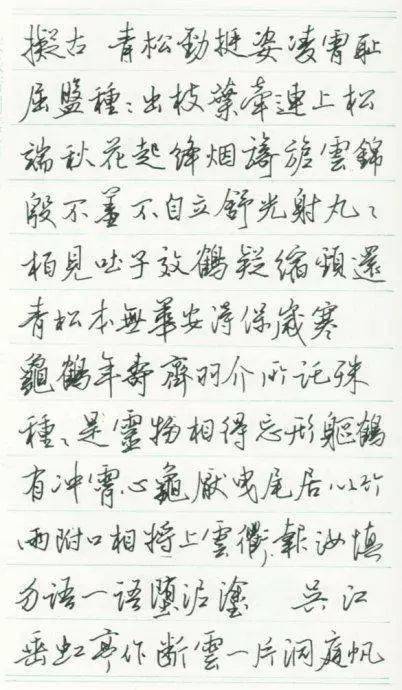 擬古 青松勁挺姿凌霄恥
屈盤種〻出枝葉牽連上松
端秋花起絳烟旖旎雲錦
殷不羞不自立舒光射丸〻
柏見吐子效鶴疑縮頸還
青松本無華安得保歲寒
龜鶴年壽齊羽介所託殊
種〻是靈物相得忘形軀鶴
有冲霄心龜厭曳尾居以竹
兩附口相將上雲衢報汝慎
勿語一語墮泥塗 吴江
垂虹亭作 斷雲一片洞庭帆